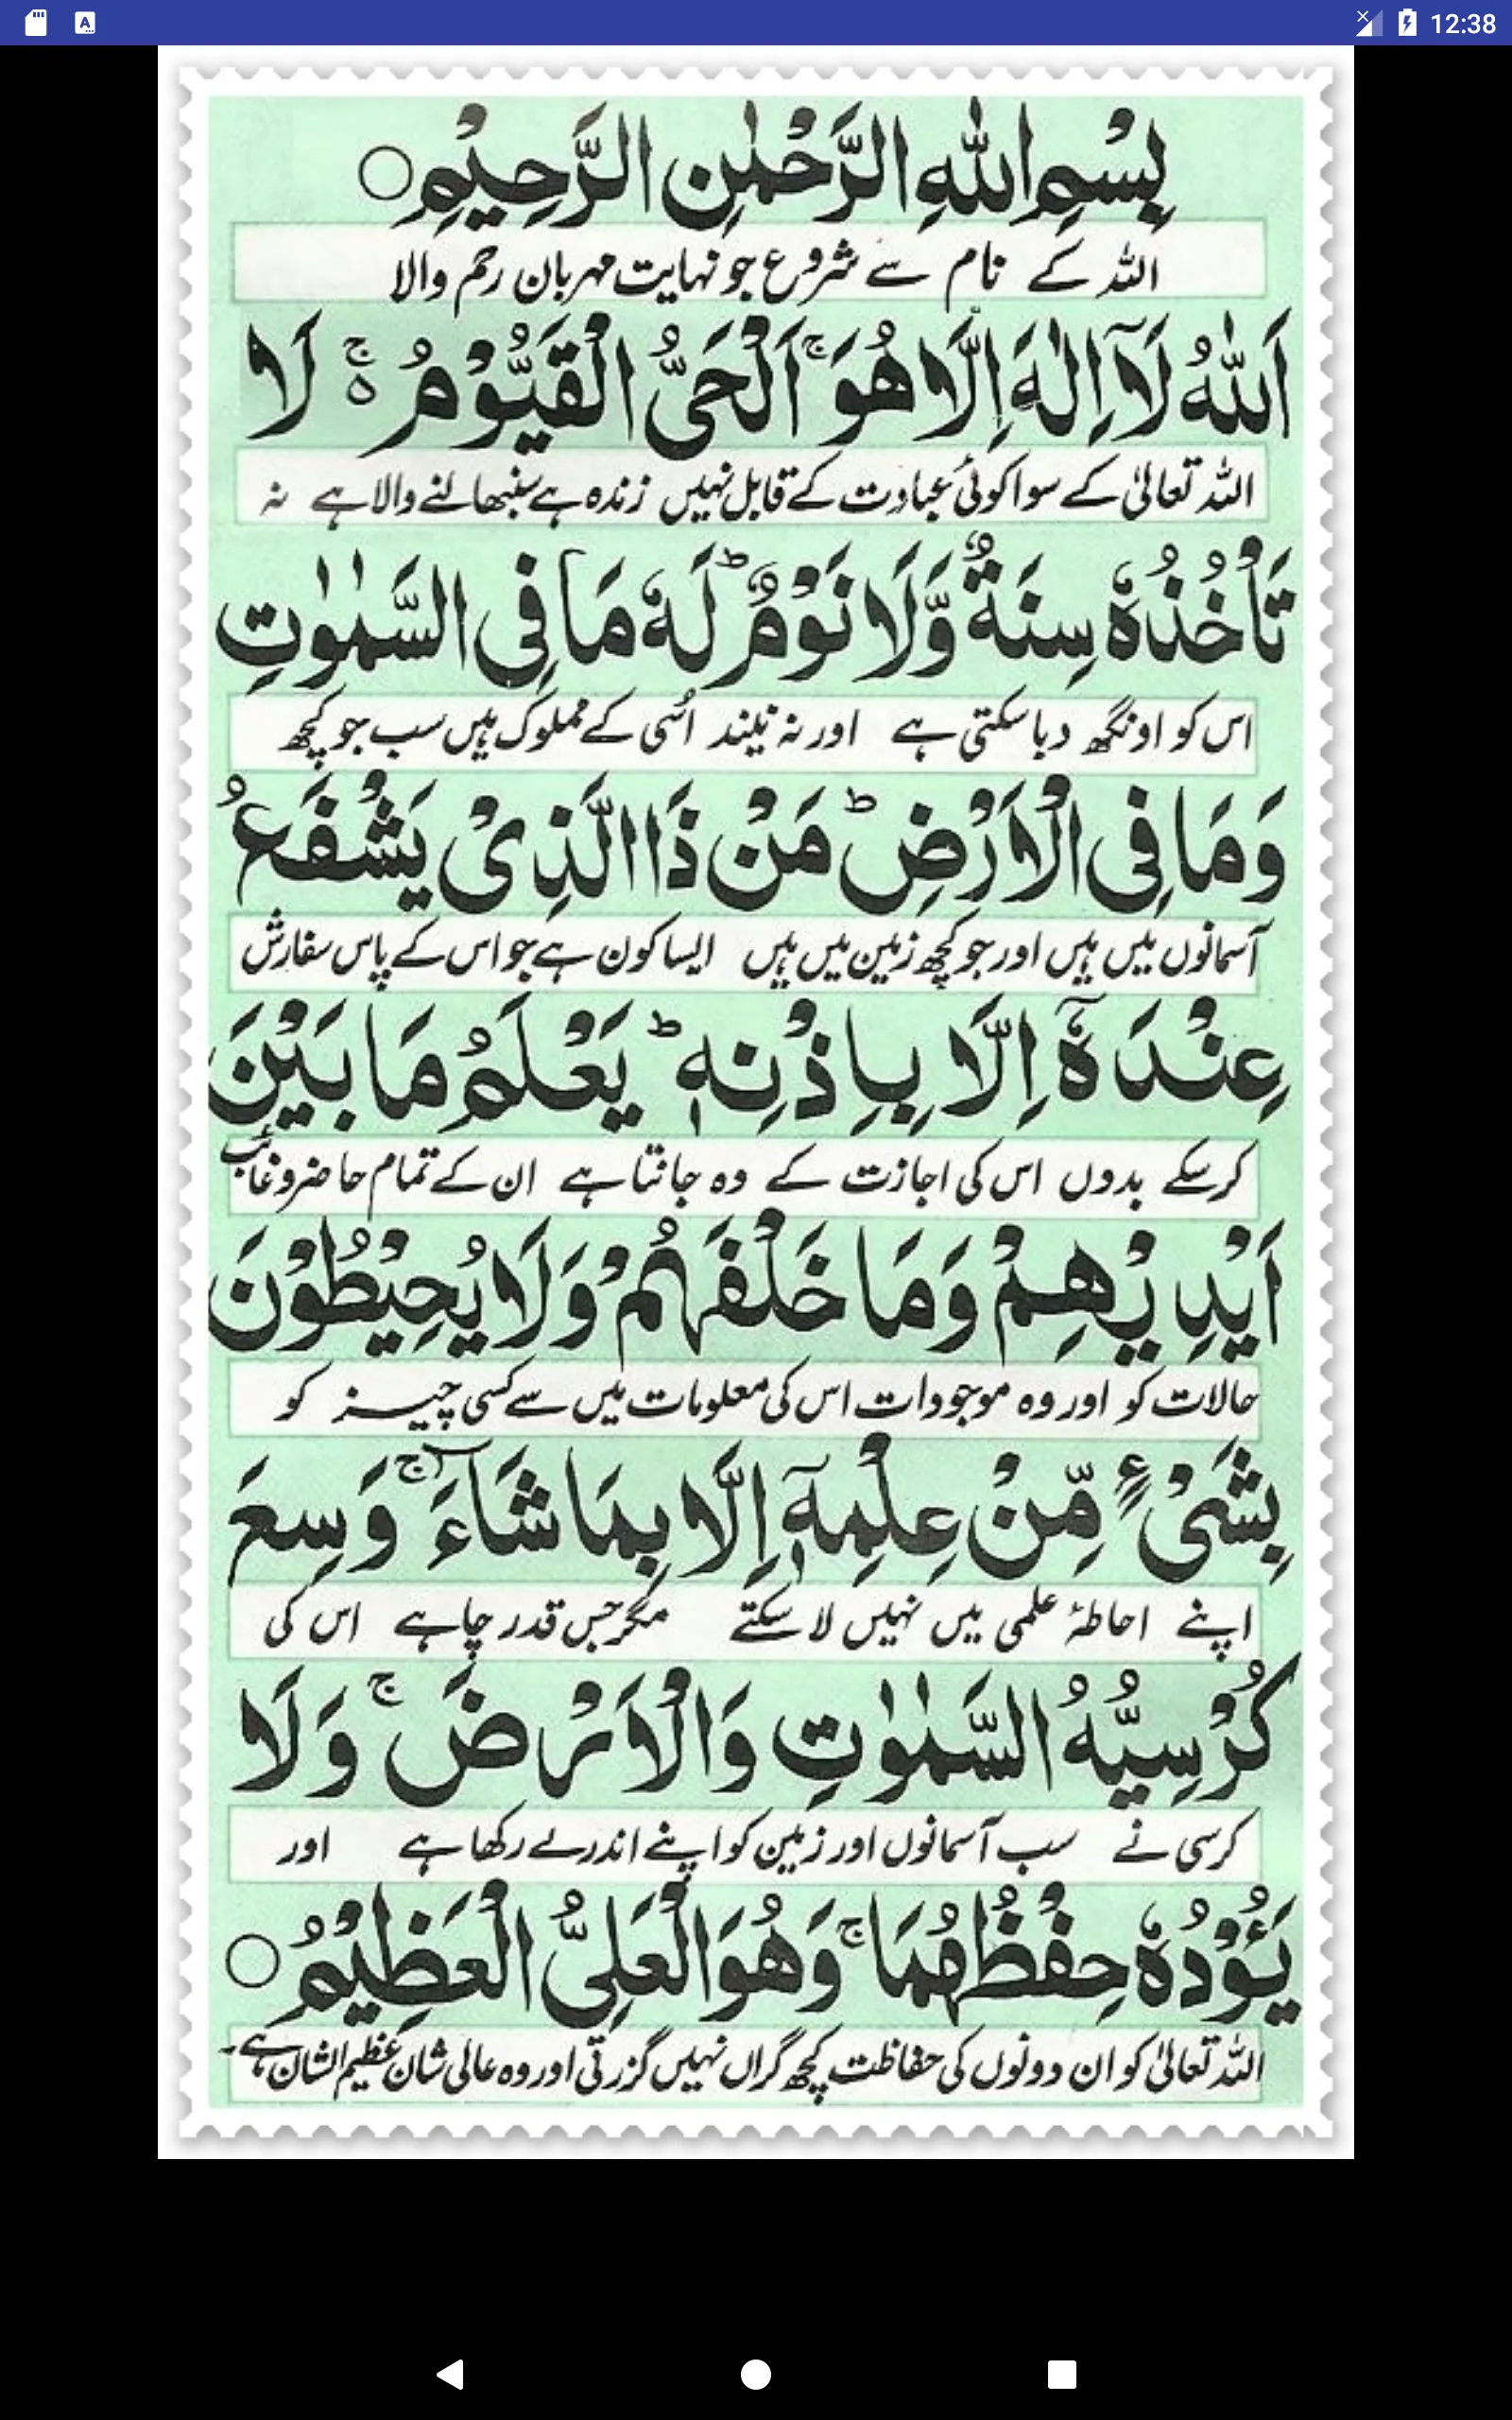 12:38
بِسْمِ اللّٰهِ الرَّحْمٰنِ الرَّحِيْمِ ○
اللہ کے نام سے شروع جو نہایت مہربان رحم والا
اَللّٰهُ لَآ اِلٰهَ اِلَّا هُوَ ۚ اَلْحَيُّ الْقَيُّوْمُ ۚ۬ لَا
اللہ تعالیٰ کے سوا کوئی عبادت کے قابل نہیں زندہ ہے سنبھالنے والا ہے نہ
تَاْخُذُهٗ سِنَةٌ وَّلَا نَوْمٌ ؕ لَهٗ مَا فِى السَّمٰوٰتِ
اس کو اونگھ دبا سکتی ہے اور نہ نیند اُسی کے مملوک ہیں سب جو کچھ
وَمَا فِى الْاَرْضِ ؕ مَنْ ذَا الَّذِىْ يَشْفَعُ
آسمانوں میں ہیں اور جو کچھ زمین میں ہیں ایسا کون ہے جو اس کے پاس سفارش
عِنْدَهٗٓ اِلَّا بِاِذْنِهٖ ؕ يَعْلَمُ مَا بَيْنَ
کر سکے بدوں اس کی اجازت کے وہ جانتا ہے ان کے تمام حاضر و غائب
اَيْدِيْهِمْ وَمَا خَلْفَهُمْ وَلَا يُحِيْطُوْنَ
حالات کو اور وہ موجودات اس کی معلومات میں سے کسی چیز کو
بِشَىْءٍ مِّنْ عِلْمِهٖٓ اِلَّا بِمَا شَآءَ ۚ وَسِعَ
اپنے احاطۂ علمی میں نہیں لا سکتے مگر جس قدر چاہے اس کی
كُرْسِيُّهُ السَّمٰوٰتِ وَالْاَرْضَ ۚ وَلَا
کرسی نے سب آسمانوں اور زمین کو اپنے اندر لے رکھا ہے اور
يَـُٔوْدُهٗ حِفْظُهُمَا ۚ وَهُوَ الْعَلِىُّ الْعَظِيْمُ ○
اللہ تعالیٰ کو ان دونوں کی حفاظت کچھ گراں نہیں گزرتی اور وہ عالی شان عظیم الشان ہے۔